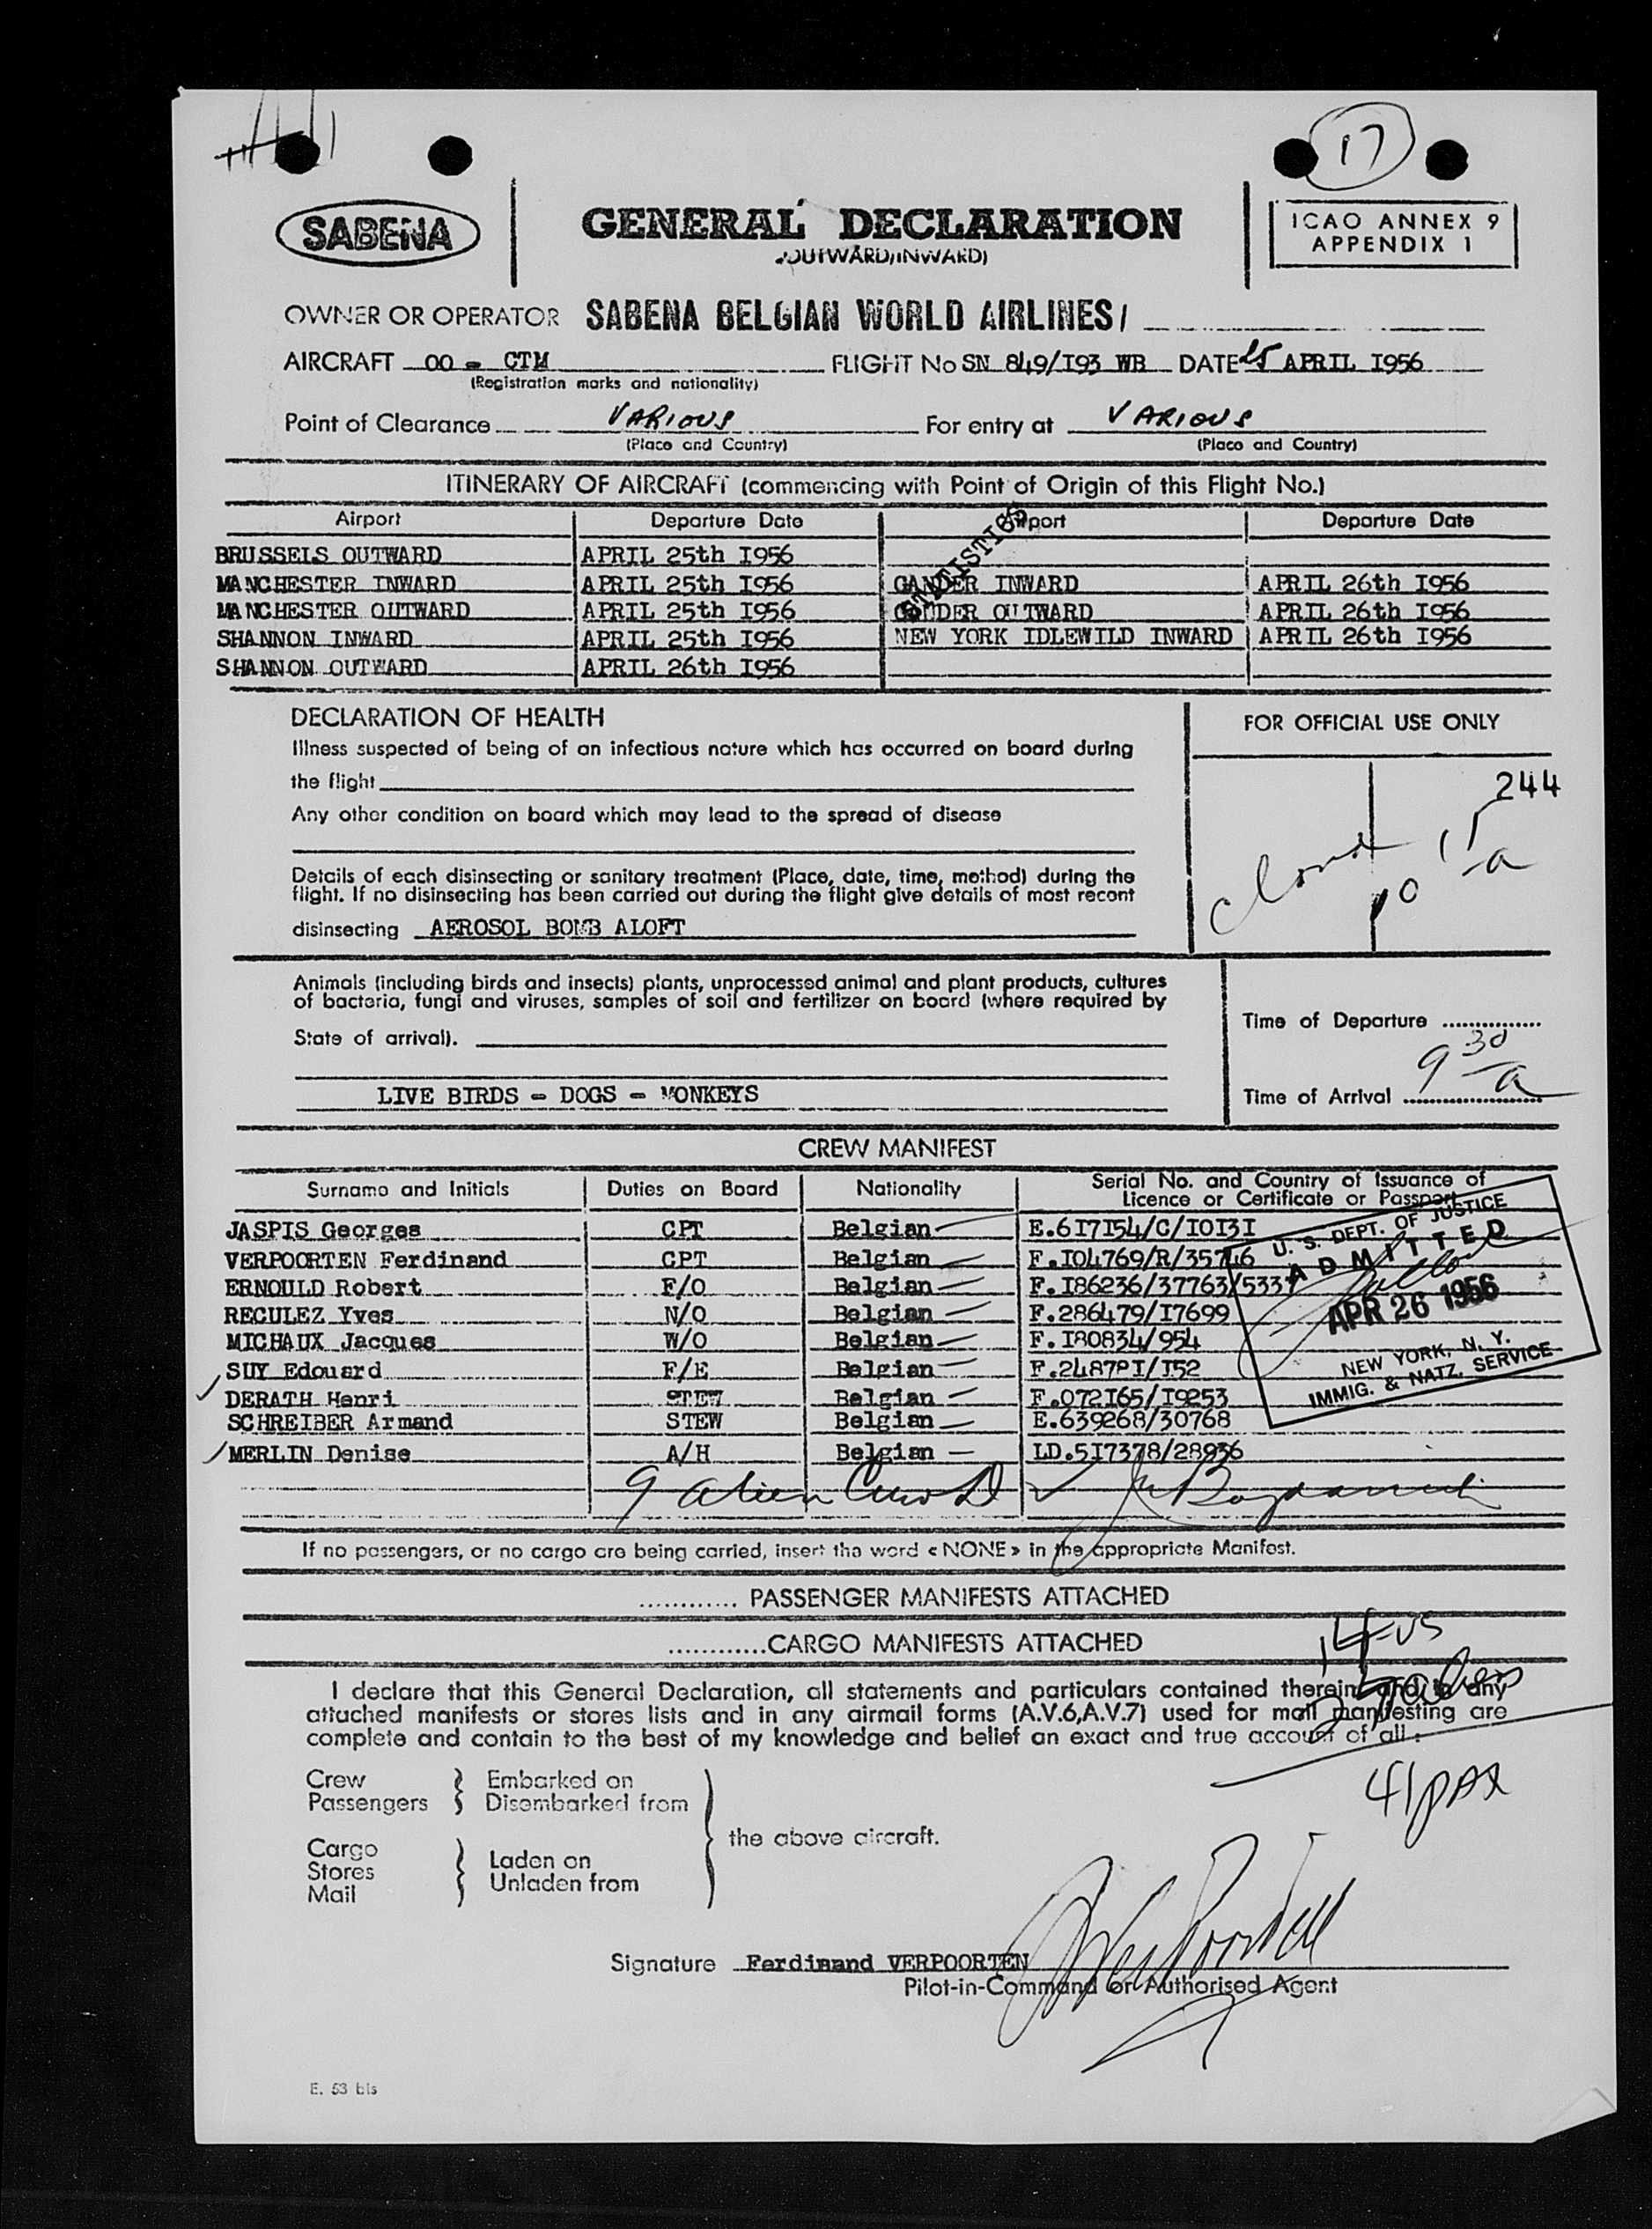 17
SABENA
GENERAL DECLARATION
(OUTWARD/INWARD)
ICAO ANNEX 9
APPENDIX 1
OWNER OR OPERATOR SABENA BELGIAN WORLD AIRLINES/
AIRCRAFT OO - CTM FLIGHT No SN 849/I93 WB DATE 25 APRIL I956
(Registration marks and nationality)
Point of Clearance VARIOUS For entry at VARIOUS
(Place and Country) (Place and Country)
ITINERARY OF AIRCRAFT (commencing with Point of Origin of this Flight No.)
Airport Departure Date Airport Departure Date
STATISTICS
BRUSSELS OUTWARD APRIL 25th I956
MANCHESTER INWARD APRIL 25th I956 GANDER INWARD APRIL 26th I956
MANCHESTER OUTWARD APRIL 25th I956 GANDER OUTWARD APRIL 26th I956
SHANNON INWARD APRIL 25th I956 NEW YORK IDLEWILD INWARD APRIL 26th I956
SHANNON OUTWARD APRIL 26th I956
DECLARATION OF HEALTH
Illness suspected of being of an infectious nature which has occurred on board during
the flight
Any other condition on board which may lead to the spread of disease
Details of each disinsecting or sanitary treatment (Place, date, time, method) during the
flight. If no disinsecting has been carried out during the flight give details of most recent
disinsecting AEROSOL BOMB ALOFT
FOR OFFICIAL USE ONLY
244
10 15 a
Animals (including birds and insects) plants, unprocessed animal and plant products, cultures
of bacteria, fungi and viruses, samples of soil and fertilizer on board (where required by
State of arrival).
LIVE BIRDS - DOGS - MONKEYS
Time of Departure
Time of Arrival 9 30 a
CREW MANIFEST
Surname and Initials Duties on Board Nationality Serial No. and Country of Issuance of
Licence or Certificate or Passport
JASPIS Georges CPT Belgian E.6I7I54/C/IOI3I
VERPOORTEN Ferdinand CPT Belgian F.IO4769/R/35746
ERNOULD Robert F/O Belgian F.I86236/37763/5337
RECULEZ Yves N/O Belgian F.286479/I7699
MICHAUX Jacques W/O Belgian F.I80834/954
SUY Edouard F/E Belgian F.2487PI/I52
DERATH Henri STEW Belgian F.072I65/I9253
SCHREIBER Armand STEW Belgian E.639268/30768
MERLIN Denise A/H Belgian LD.5I7378/28936
U. S. DEPT. OF JUSTICE
ADMITTED
APR 26 1956
NEW YORK, N. Y.
IMMIG. & NATZ. SERVICE
9 alien Crew
If no passengers, or no cargo are being carried, insert the word « NONE » in the appropriate Manifest.
............ PASSENGER MANIFESTS ATTACHED
............CARGO MANIFESTS ATTACHED
14 US
I declare that this General Declaration, all statements and particulars contained therein, and in any
attached manifests or stores lists and in any airmail forms (A.V.6,A.V.7) used for mail manifesting are
complete and contain to the best of my knowledge and belief an exact and true account of all :
27 aliens
41 PAX
Crew Embarked on
Passengers Disembarked from
the above aircraft.
Cargo
Stores Laden on
Mail Unladen from
Signature Ferdinand VERPOORTEN
Pilot-in-Command or Authorised Agent
E. 53 bis